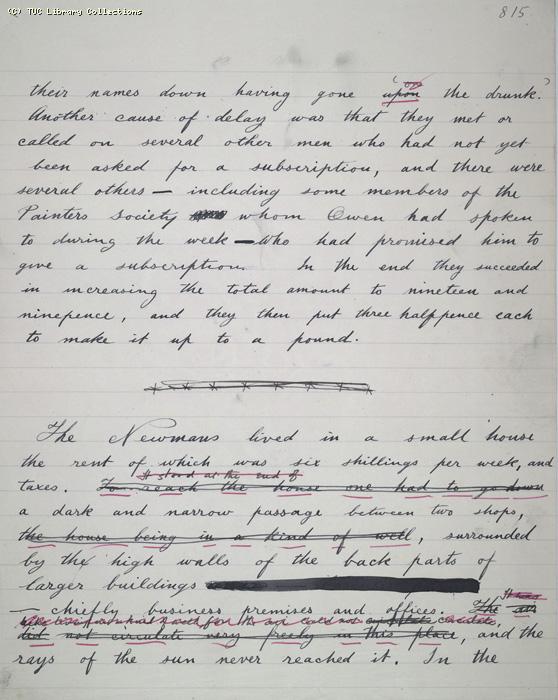 (C) TUC Library Collections
815
their names down having gone 'upon on the drunk.'
Another cause of delay was that they met or
called on several other men who had not yet
been asked for a subscription, and there were
several others — including some members of the
Painters Society whom Owen had spoken
to during the week — who had promised him to
give a subscription. In the end they succeeded
in increasing the total amount to nineteen and
ninepence, and they then put three halfpence each
to make it up to a pound.
The Newmans lived in a small house
the rent of which was six shillings per week, and
It stood at the end of
taxes. To reach the house one had to go down
a dark and narrow passage between two shops,
the house being in a kind of well, surrounded
by the high walls of the back parts of
larger buildings
— chiefly business premises and offices. The air
did not circulate very freely in this place, and the
rays of the sun never reached it. In the